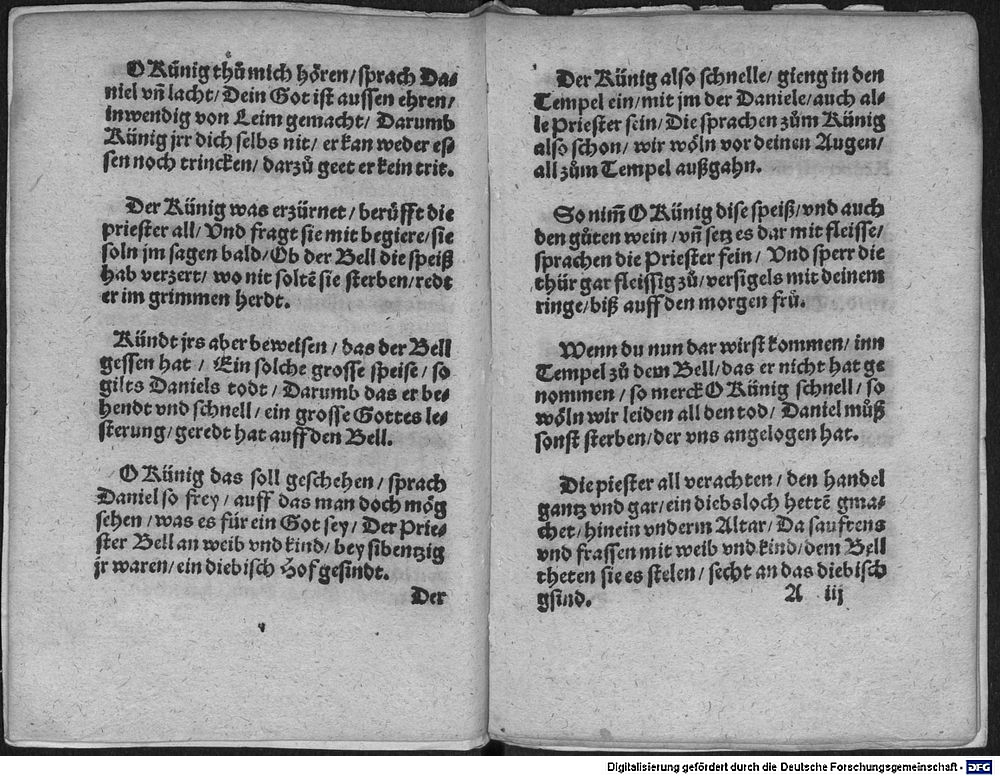 O Künig thů mich hören/ sprach Da⸗
niel vñ lacht/ Dein Got ist aussen ehren/
inwendig von Leim gemacht/ Darumb
Künig jrr dich selbs nit/ er kan weder es⸗
sen noch trincken/ darzů geet er kein trit.
Der Künig was erzürnet/ berüfft die
priester all/ Vnd fragt sie mit begiere/ sie
soln jm sagen bald/ Ob der Bell die speiß
hab verzert/ wo nit soltẽ sie sterben/ redt
er im grimmen herdt.
Kündt jrs aber beweisen/ das der Bell
gessen hat/ Ein solche grosse speise/ so
gilts Daniels todt/ Darumb das er be⸗
hendt vnd schnell/ ein grosse Gottes le⸗
sterung/ geredt hat auff den Bell.
O Künig das soll geschehen/ sprach
Daniel so frey/ auff das man doch mög
sehen/ was es für ein Got sey/ Der Prie⸗
ster Bell an weib vnd kind/ bey sibentzig
jr waren/ ein diebisch Hofgesindt.
Der
Der Künig also schnelle/ gieng in den
Tempel ein/ mit jm der Daniele/ auch al⸗
le Priester sein/ Die sprachen zům Künig
also schon/ wir wöln vor deinen Augen/
all zům Tempel außgahn.
So nim̃ O Künig dise speiß/ vnd auch
den gůten wein/ vñ setz es dar mit fleisse/
sprachen die Priester fein/ Vnd sperr die
thür gar fleissig zů/ versigels mit deinem
ringe/ biß auff den morgen frů.
Wenn du nun dar wirst kommen/ inn
Tempel zů dem Bell/ das er nicht hat ge
nommen/ so merck O Künig schnell/ so
wöln wir leiden all den tod/ Daniel můß
sonst sterben/ der vns angelogen hat.
Die piester all verachten/ den handel
gantz vnd gar/ ein diebsloch hettẽ gma⸗
chet/ hinein vnderm Altar/ Da sauftens
vnd frassen mit weib vnd kind/ dem Bell
theten sie es stelen/ secht an das diebisch
gsind.
A iij
Digitalisierung gefördert durch die Deutsche Forschungsgemeinschaft - DFG